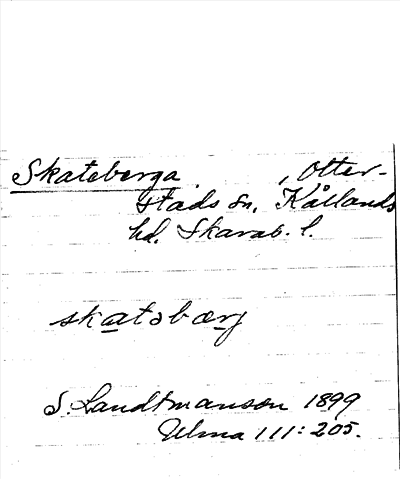 Skateberga, Otter-
stads sn, Kållands
hd. Skarab. l.
skatəbærj
S. Landtmanson 1899
Ulma 111:205.